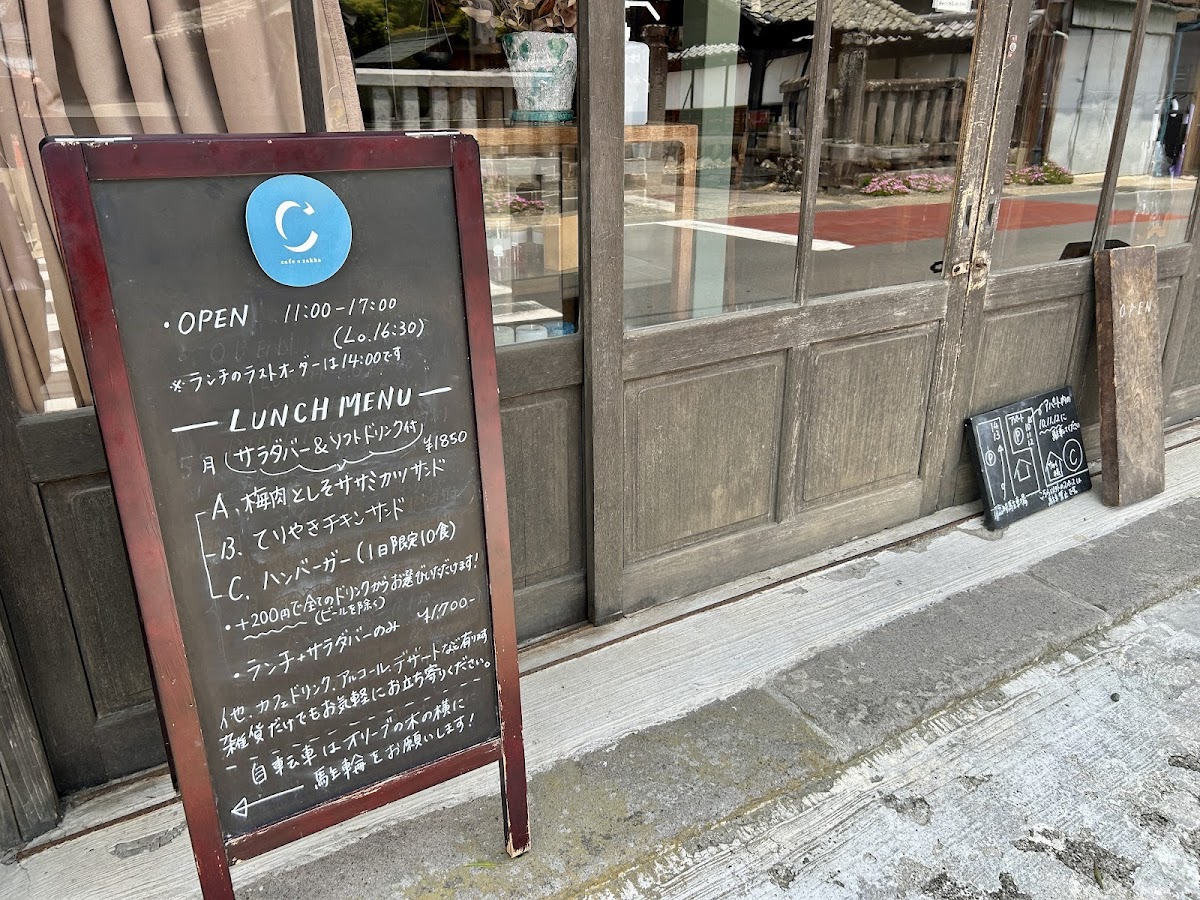 C
cafe n zakka
・OPEN 11:00-17:00
(Lo.16:30)
※ランチのラストオーダーは14:00です
LUNCH MENU
月 (サラダバー&ソフトドリンク付) ¥1850
A. 梅肉としそササミカツサンド
B. てりやきチキンサンド
C. ハンバーガー(1日限定10食)
・+200円で全てのドリンクからお選びいただけます!
(ビールを除く)
・ランチ+サラダバーのみ ¥1700-
他、カフェドリンク、アルコール、デザートなど有ります
雑貨だけでもお気軽にお立ち寄りください。
自転車はオリーブの木の横に
駐輪をお願いします!
OPEN
アパート
10,11,12に
P
P
C
14
13